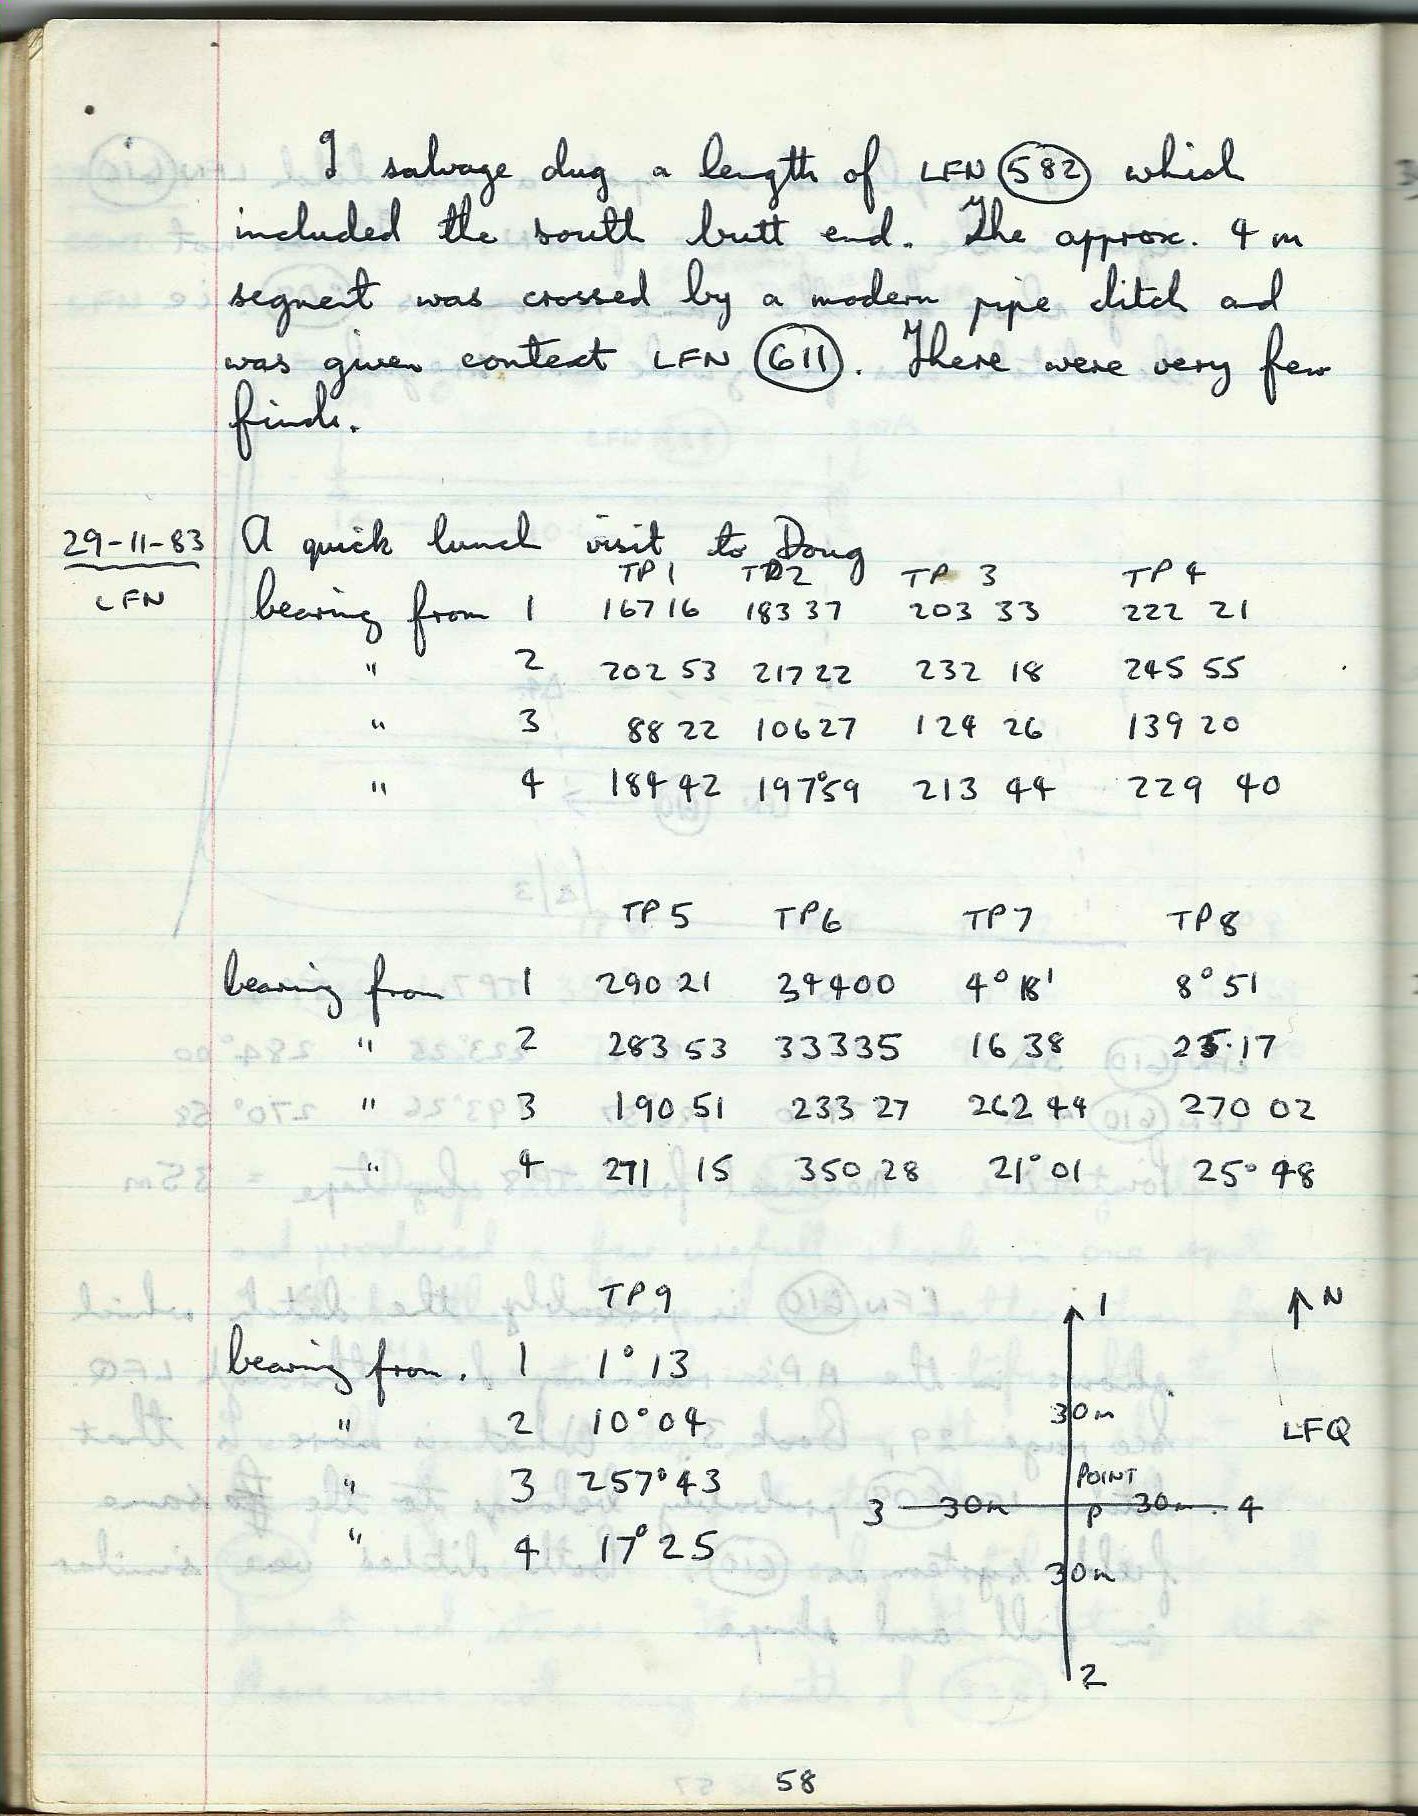 I salvage dug a length of LFN 582 which
included the south butt end. The approx. 4 m
segment was crossed by a modern pipe ditch and
was given context LFN 611. There were very few
finds.
29-11-83 A quick lunch visit to Doug
LFN
TP1 TP2 TP 3 TP 4
bearing from 1 167 16 183 37 203 33 222 21
" 2 202 53 217 22 232 18 245 55
" 3 88 22 106 27 124 26 139 20
" 4 184 42 197°59 213 44 229 40
TP5 TP6 TP7 TP8
bearing from 1 290 21 344 00 4° 18' 8° 51
" 2 283 53 333 35 16 38 25·17
" 3 190 51 233 27 262 44 270 02
" 4 271 15 350 28 21° 01 25° 48
TP9
bearing from. 1 1° 13
" 2 10° 04
" 3 257° 43
" 4 17° 25
1 N
30m
LFQ
POINT
3 30m P 30m 4
30m
2
58